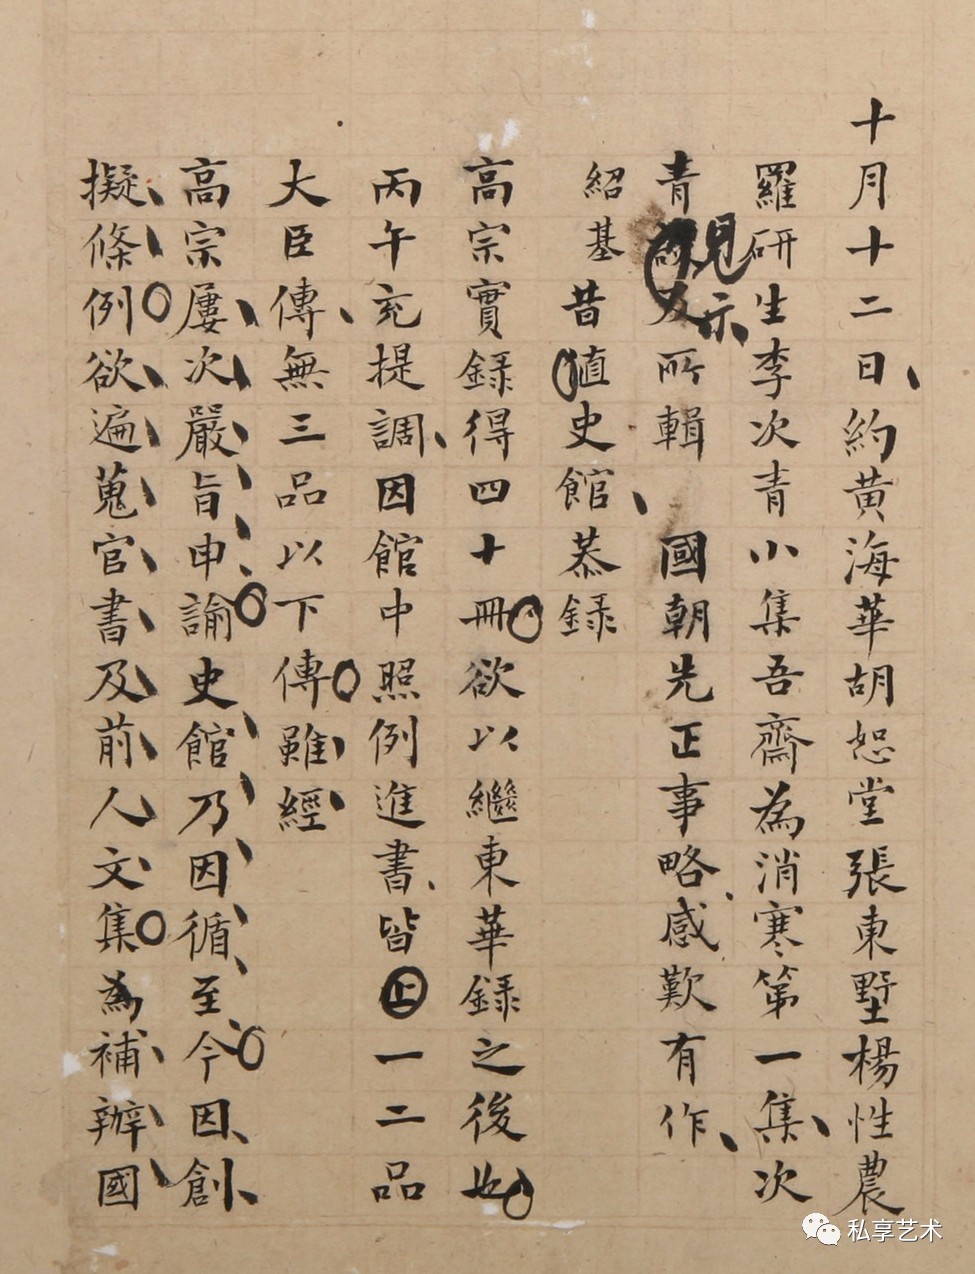 十月十二日約黃海華胡恕堂張東墅楊性農
羅研生李次青小集吾齋為消寒第一集次
青見示所輯國朝先正事略感歎有作
紹基昔值史館恭錄
高宗實錄得四十冊欲以繼東華錄之後也
丙午充提調因館中照例進書皆止一二品
大臣傳無三品以下傳雖經
高宗屢次嚴旨申諭史館乃因循至今因創
擬條例欲遍蒐官書及前人文集為補辦國
私享艺术